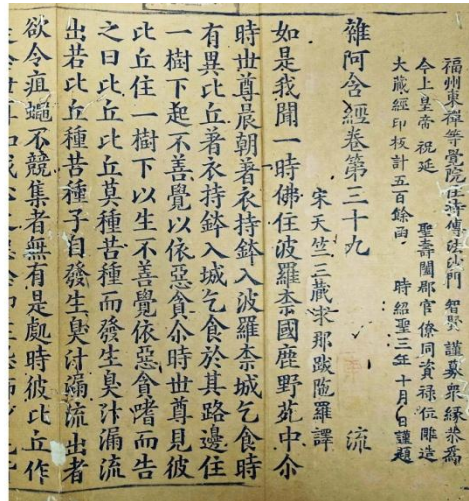 福州東禪等覺院住持傳法沙門 智賢 謹募衆緣恭爲
今上皇帝祝延 聖壽闔郡官僚同資祿位雕造
大藏經印板計五百餘函 時紹聖三年十月日謹題
雜阿含經卷第三十九 流
宋天竺三藏求那跋陁羅譯
如是我聞一時佛住波羅柰國鹿野苑中尒
時世尊晨朝着衣持鉢入波羅柰城乞食時
有異比丘着衣持鉢入城乞食於其路邊住
一樹下起不善覺以依惡貪尒時世尊見彼
比丘住一樹下以生不善覺依惡貪嗜而告
之曰比丘比丘莫種苦種而發生臭汁漏流
出若比丘種苦種子自發生臭汁漏流出者
欲令疽蠅不競集者無有是處時彼比丘作